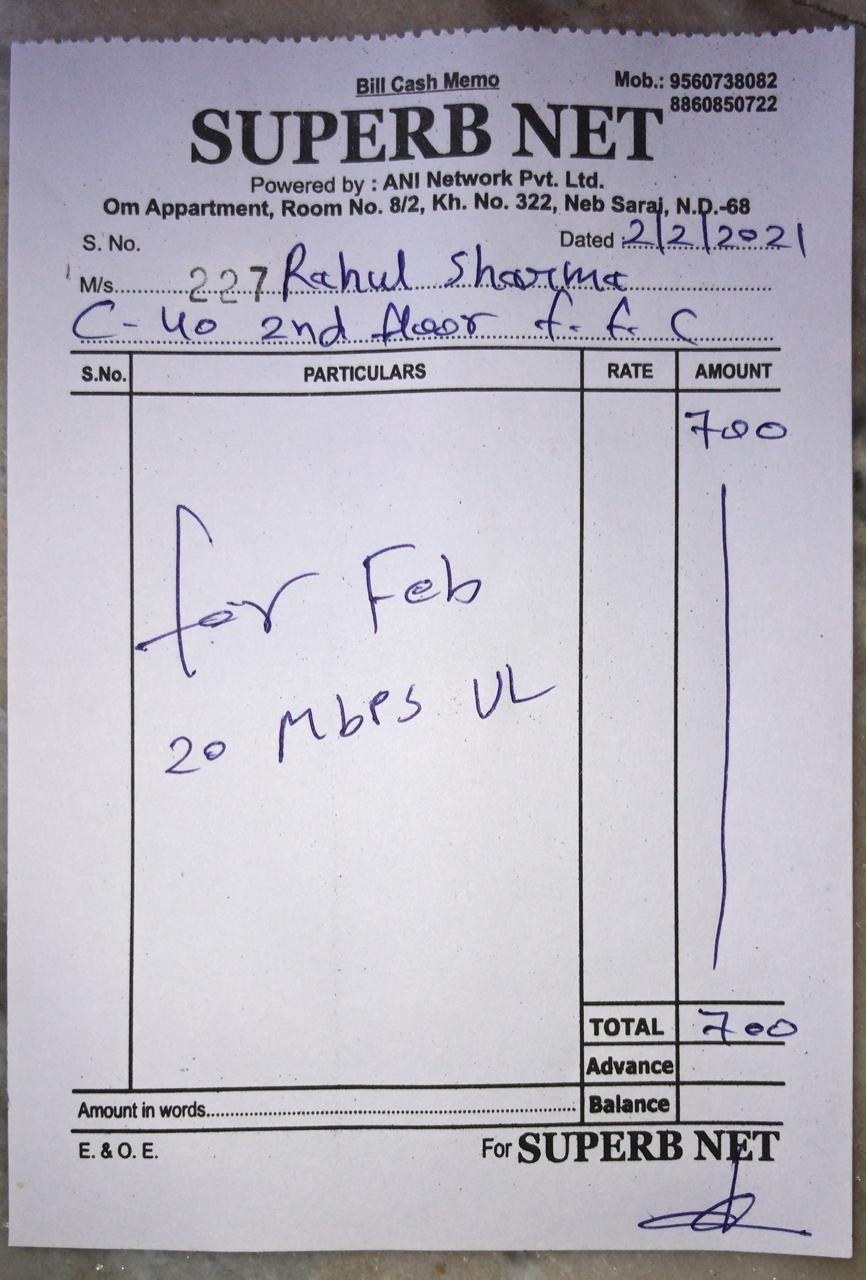 Bill Cash Memo
Mob.: 9560738082
8860850722
SUPERB NET
Powered by : ANI Network Pvt. Ltd.
Om Appartment, Room No. 8/2, Kh. No. 322, Neb Sarai, N.D.-68
S. No. Dated 2/2/2021
M/s. 227 Rahul Sharma
C-40 2nd floor f. f. C
S.No. PARTICULARS RATE AMOUNT
700
for Feb
20 Mbps UL
TOTAL 700
Advance
Amount in words Balance
E. & O. E. For SUPERB NET